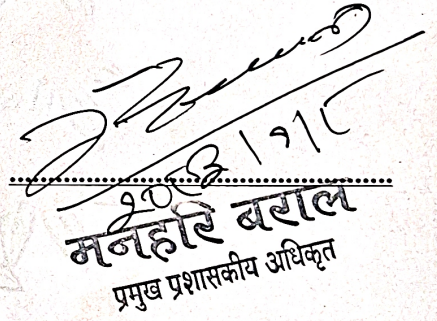 २०८३।१।८
मनहरि बराल
प्रमुख प्रशासकीय अधिकृत